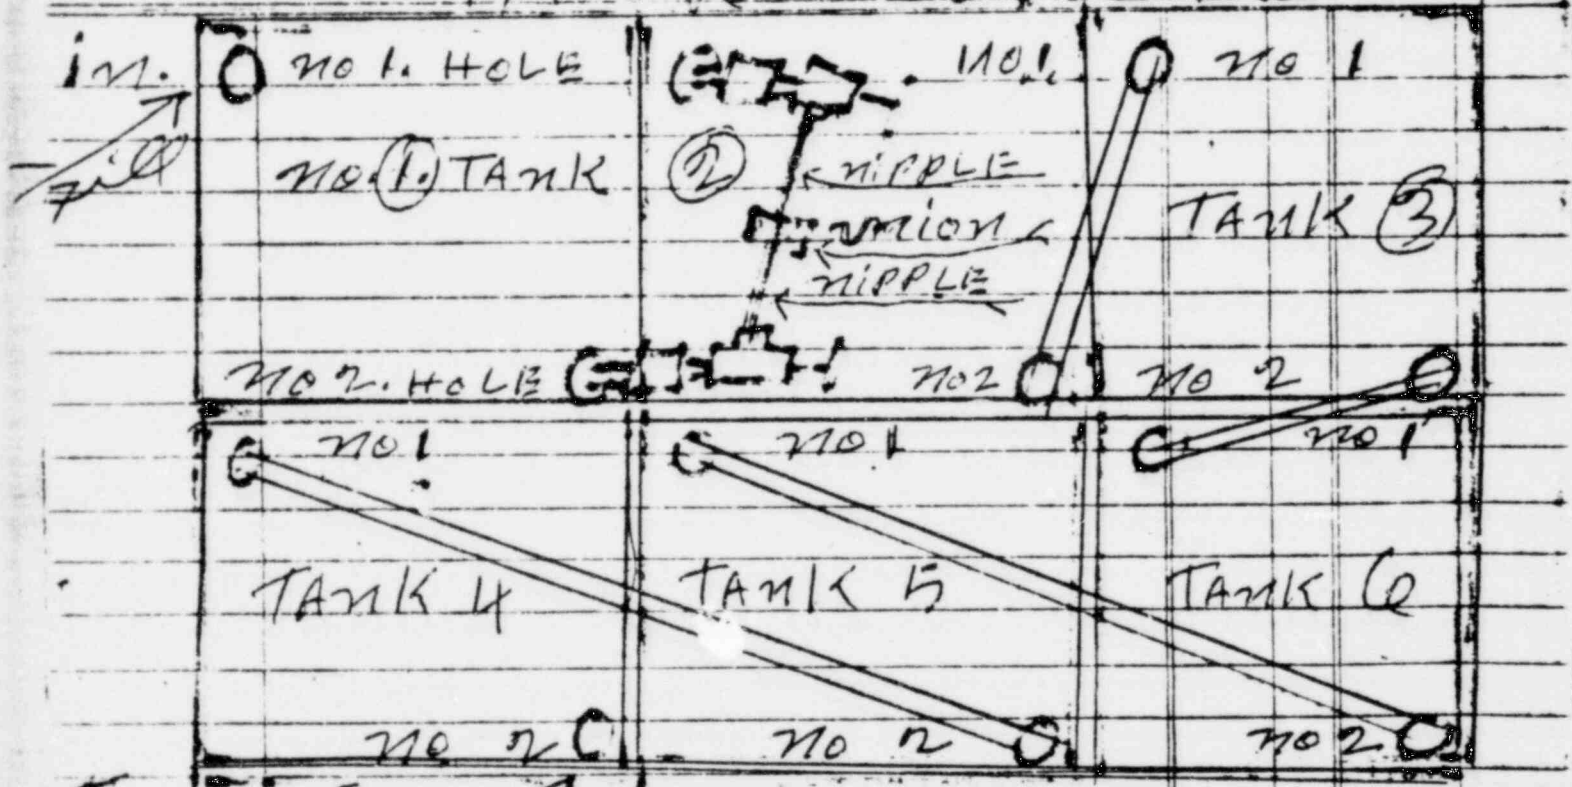 in.
fill
no 1. HOLE
no. 1. TANK
no 2. HOLE
no.1.
2
niPPLE
union
niPPLE
no2
no 1
TANK 3
no 2
no 1
TANK 4
no 2
no 1
TANK 5
no 2
no 1
TANK 6
no 2